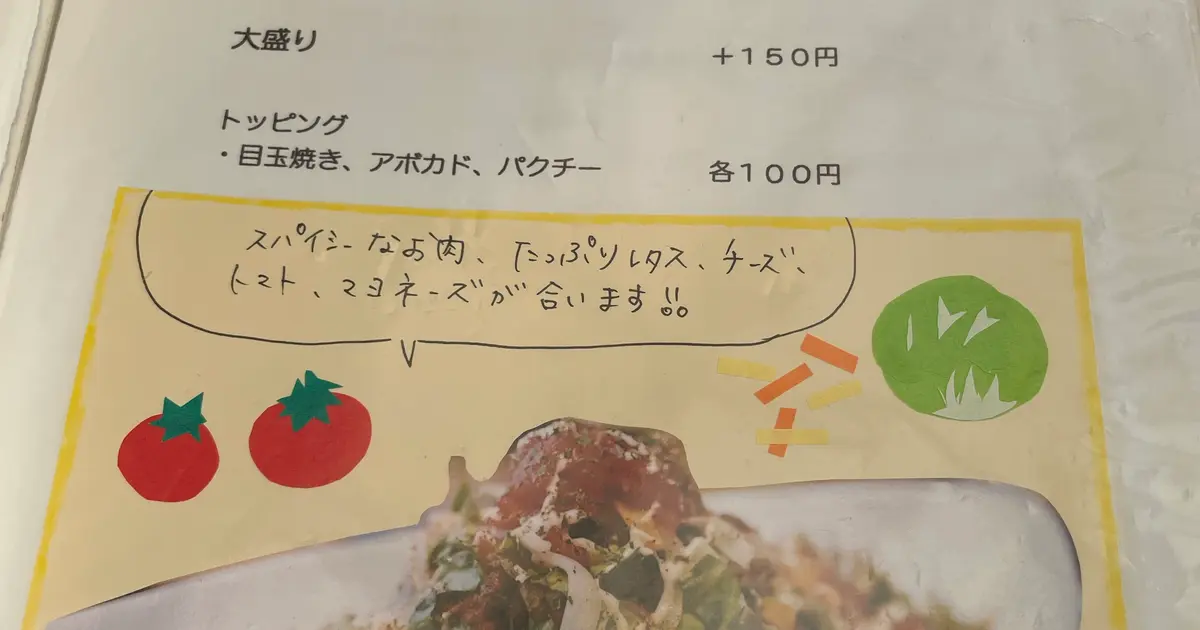 大盛り ＋１５０円
トッピング
・目玉焼き、アボカド、パクチー 各１００円
スパイシーなお肉、たっぷりレタス、チーズ、
トマト、マヨネーズが合います!!